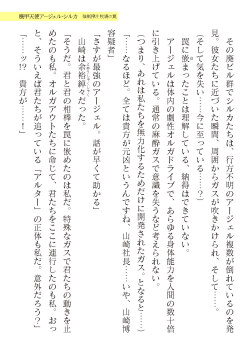 機甲天使アージェル・シルカ
　その廃ビル群でシルカたちは、行方不明のアージェル複数が倒れているのを発
見。彼女たちに近づいた瞬間、周囲からガスが吹きかけられ、そして……。
（そして気を失い……今に至っている……？）
　罠に嵌まったことは理解している。納得はできていない。
　アージェルは体内の劇性オルガドライブで、あらゆる身体能力を人間の数十倍
に引き上げている。通常の麻酔ガスで意識を失うなど考えられない。
「つまり、あれは私たちを無力化するためだけに開発されたガス。となると……。
……すべては貴方が元凶というんですね、山崎社長……いや、山崎博
容疑者」
「さすが最強のアージェル。話が早くて助かる」
　山崎は余裕綽々だった。
「そうだ。君と君の相棒を罠に嵌めたのは私だ。特殊なガスで君たちの動きを止
めたのも私。オルガアウトたちに命じて、君たちをここに連行したのも私。おっ
と、そういえば君たちが追っている『アルター』の正体も私だ。意外だろう？」
「……ッ!?　貴方が……！